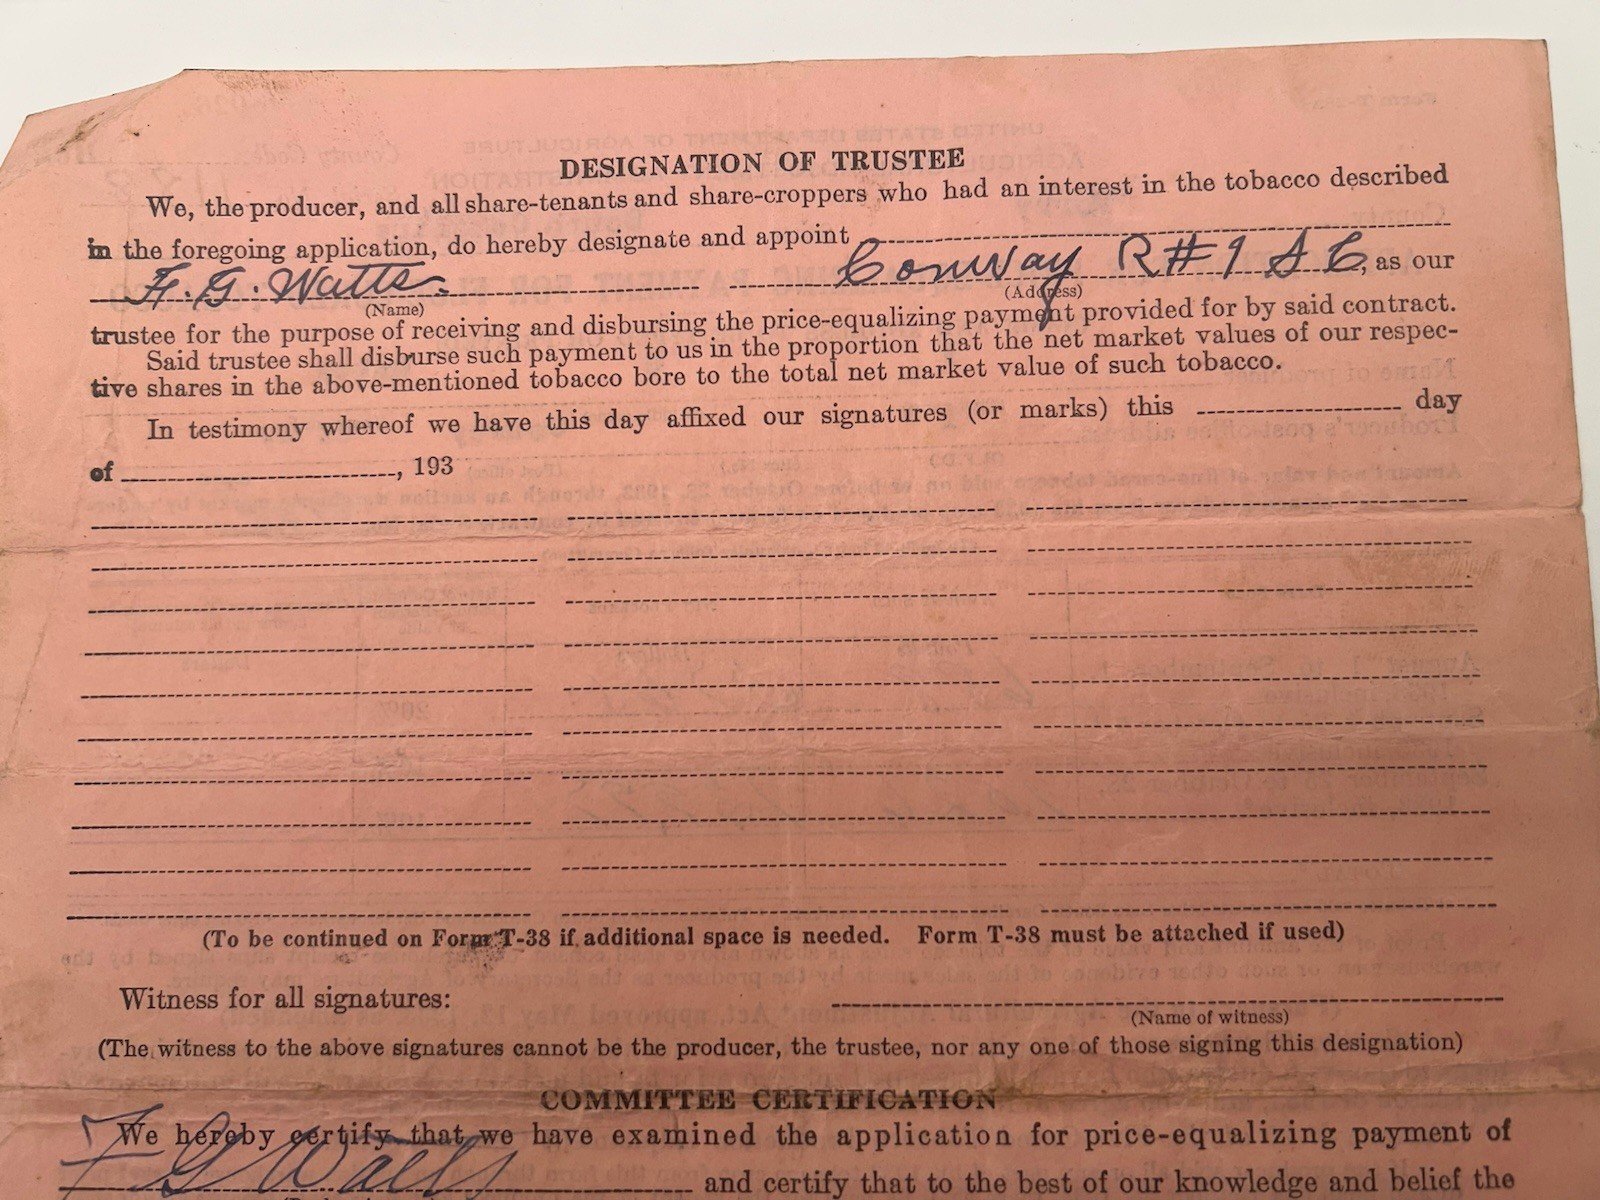 DESIGNATION OF TRUSTEE
We, the producer, and all share-tenants and share-croppers who had an interest in the tobacco described
in the foregoing application, do hereby designate and appoint
F. G. Watts. Conway R#1 S C, as our
(Name) (Address)
trustee for the purpose of receiving and disbursing the price-equalizing payment provided for by said contract.
Said trustee shall disburse such payment to us in the proportion that the net market values of our respec-
tive shares in the above-mentioned tobacco bore to the total net market value of such tobacco.
In testimony whereof we have this day affixed our signatures (or marks) this day
of , 193
(To be continued on Form T-38 if additional space is needed. Form T-38 must be attached if used)
Witness for all signatures:
(Name of witness)
(The witness to the above signatures cannot be the producer, the trustee, nor any one of those signing this designation)
COMMITTEE CERTIFICATION
We hereby certify that we have examined the application for price-equalizing payment of
F G Watts and certify that to the best of our knowledge and belief the